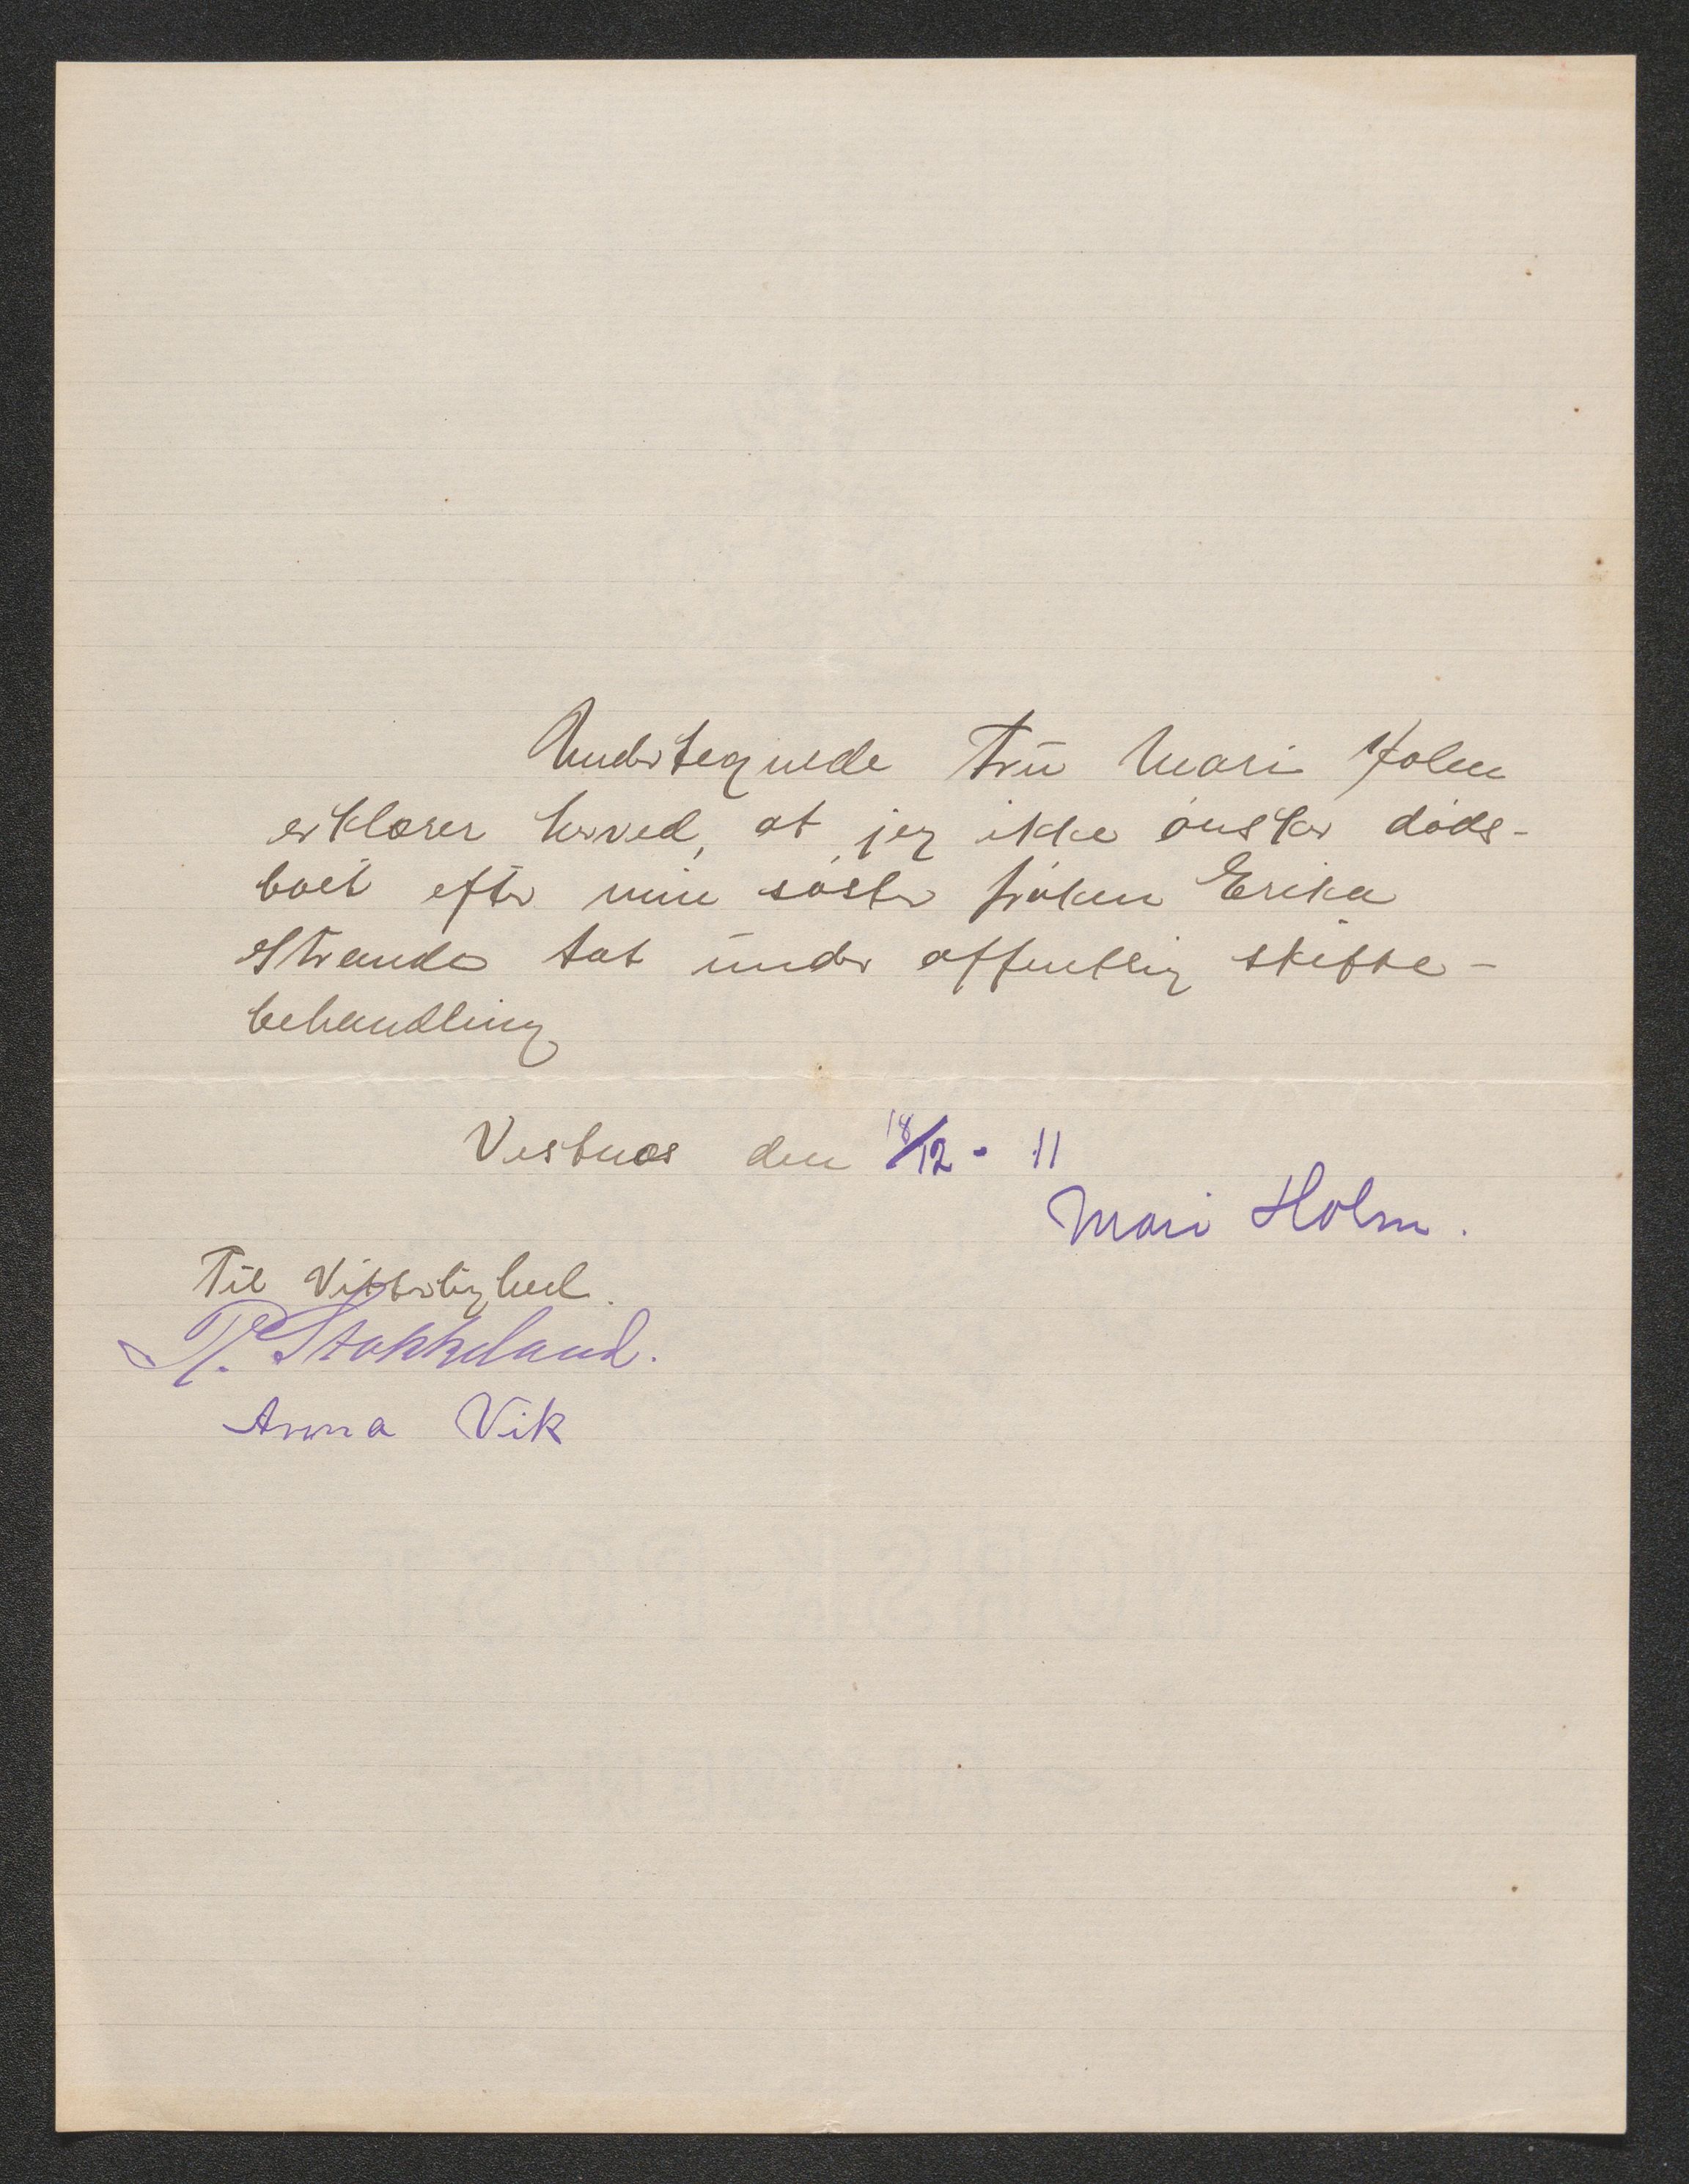 Undertegnede Frú Mari Holm
erklærer herved, at jeg ikke ønsker døds-
boet efter min søster frøken Erika
Strande tat under offentlig skifte-
behandling
Vestnes den 18/12 - 11
Mari Holm.
Til Vitterlighed.
P. Stokkeland.
Anna Vik